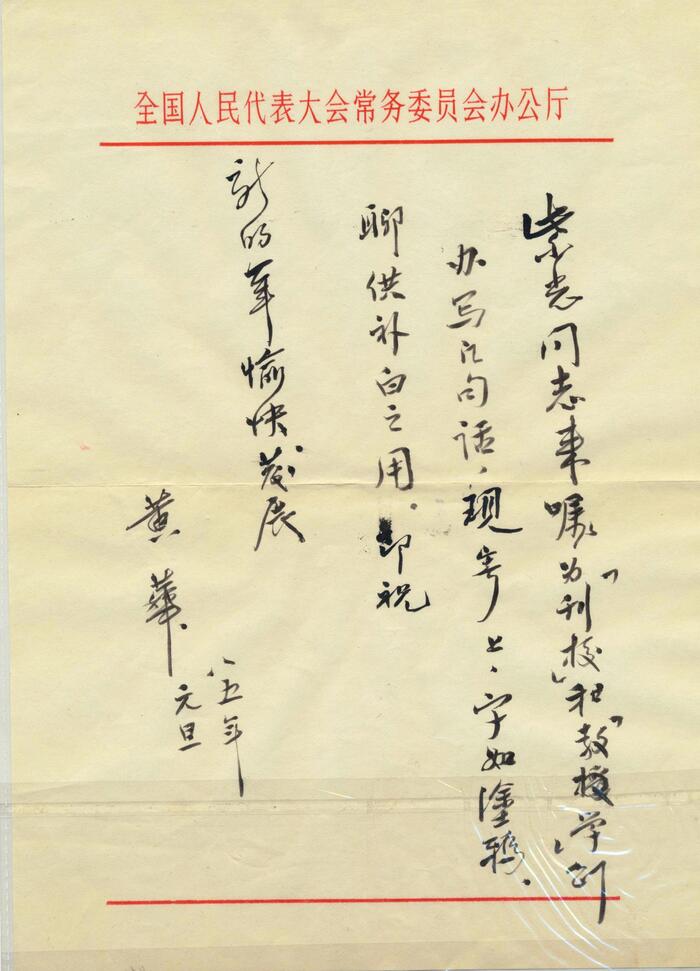 全国人民代表大会常务委员会办公厅
紫光同志来嘱为"刊授"和"教授学"创
办写几句话，现寄上，字如塗鸦，
聊供补白之用。即祝
新的年愉快发展
黄華
八五年
元旦